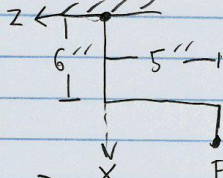 Z
6" 5"
X